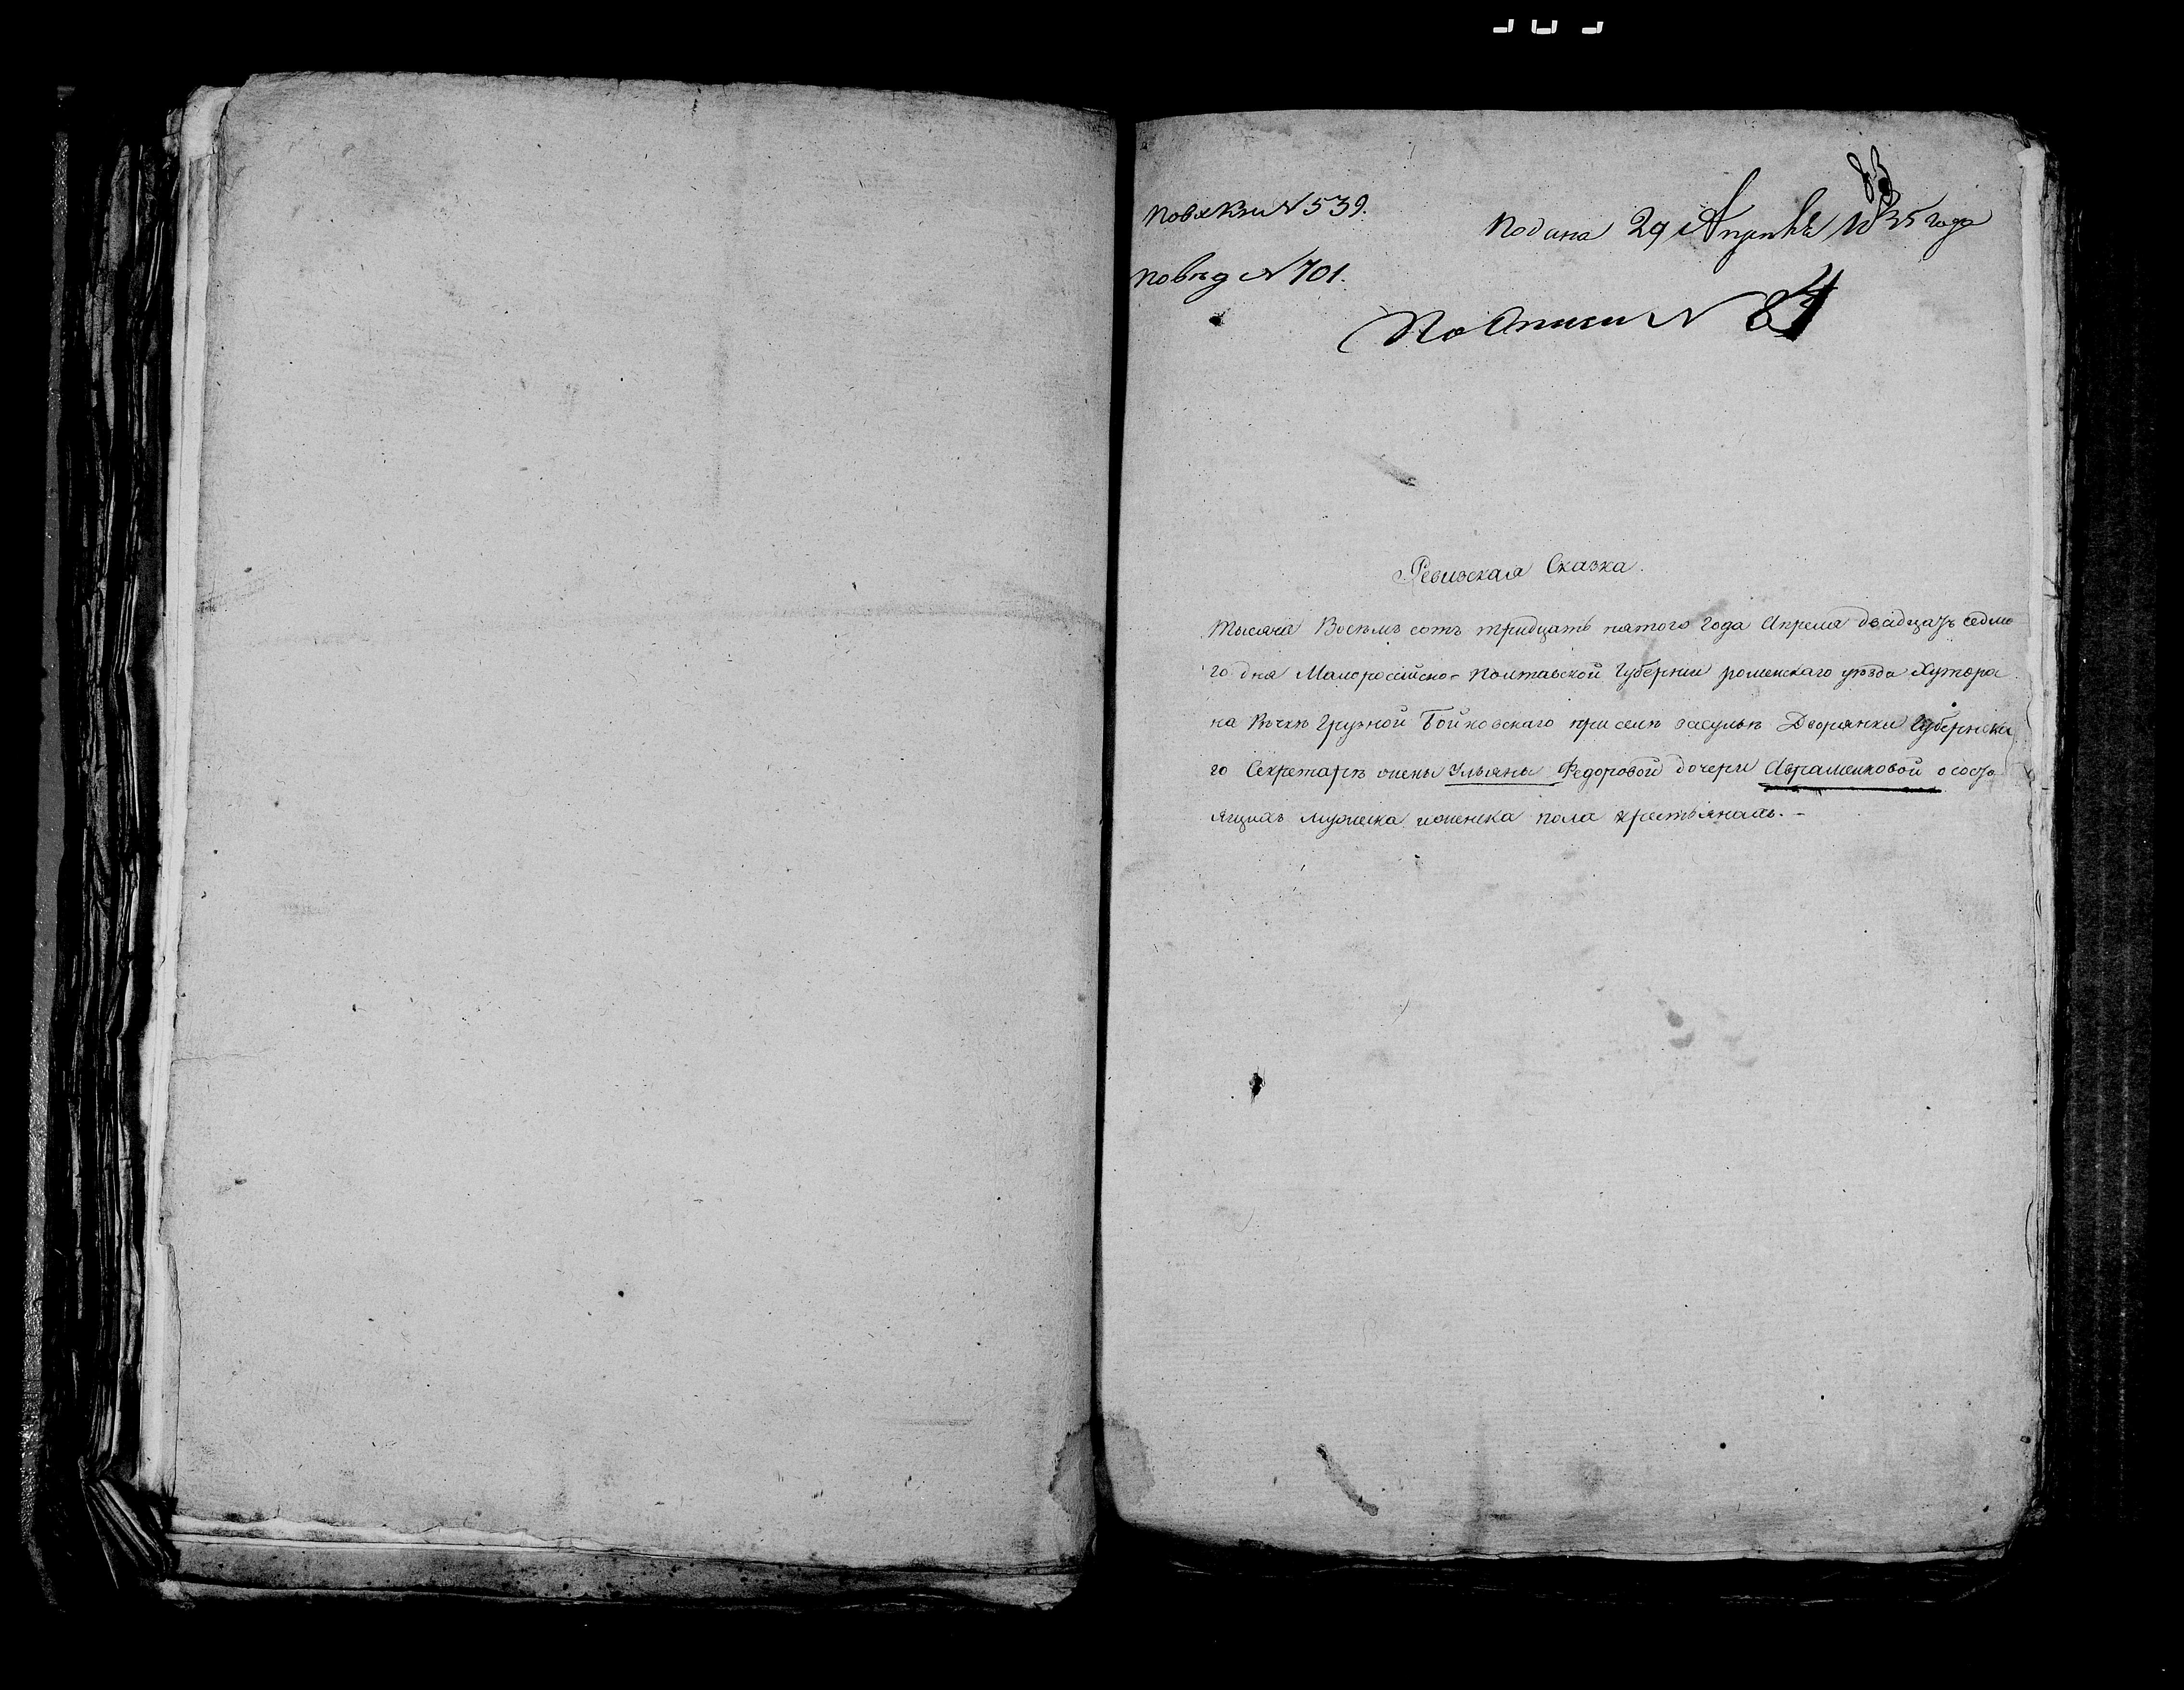 83
По вх Кни N 539.
Подана 29 Апреля 1835 года
По вѣд N 701.
По Описи N 84
Ревизская Сказка.
Тысяча Восемъ сотъ тридцать пятого года Апреля двадцать седмо
го дня Малоросiйско-Полтавской Губернiи роменскаго уѣзда Хутора
на Грузкой Бойковскаго при селѣ засульѣ Дворянки Губернска
го Секретаря жены Ульяны Федоровой дочери Авраменковой о состо
ящихъ мужеска и женска пола крестьянахъ. -